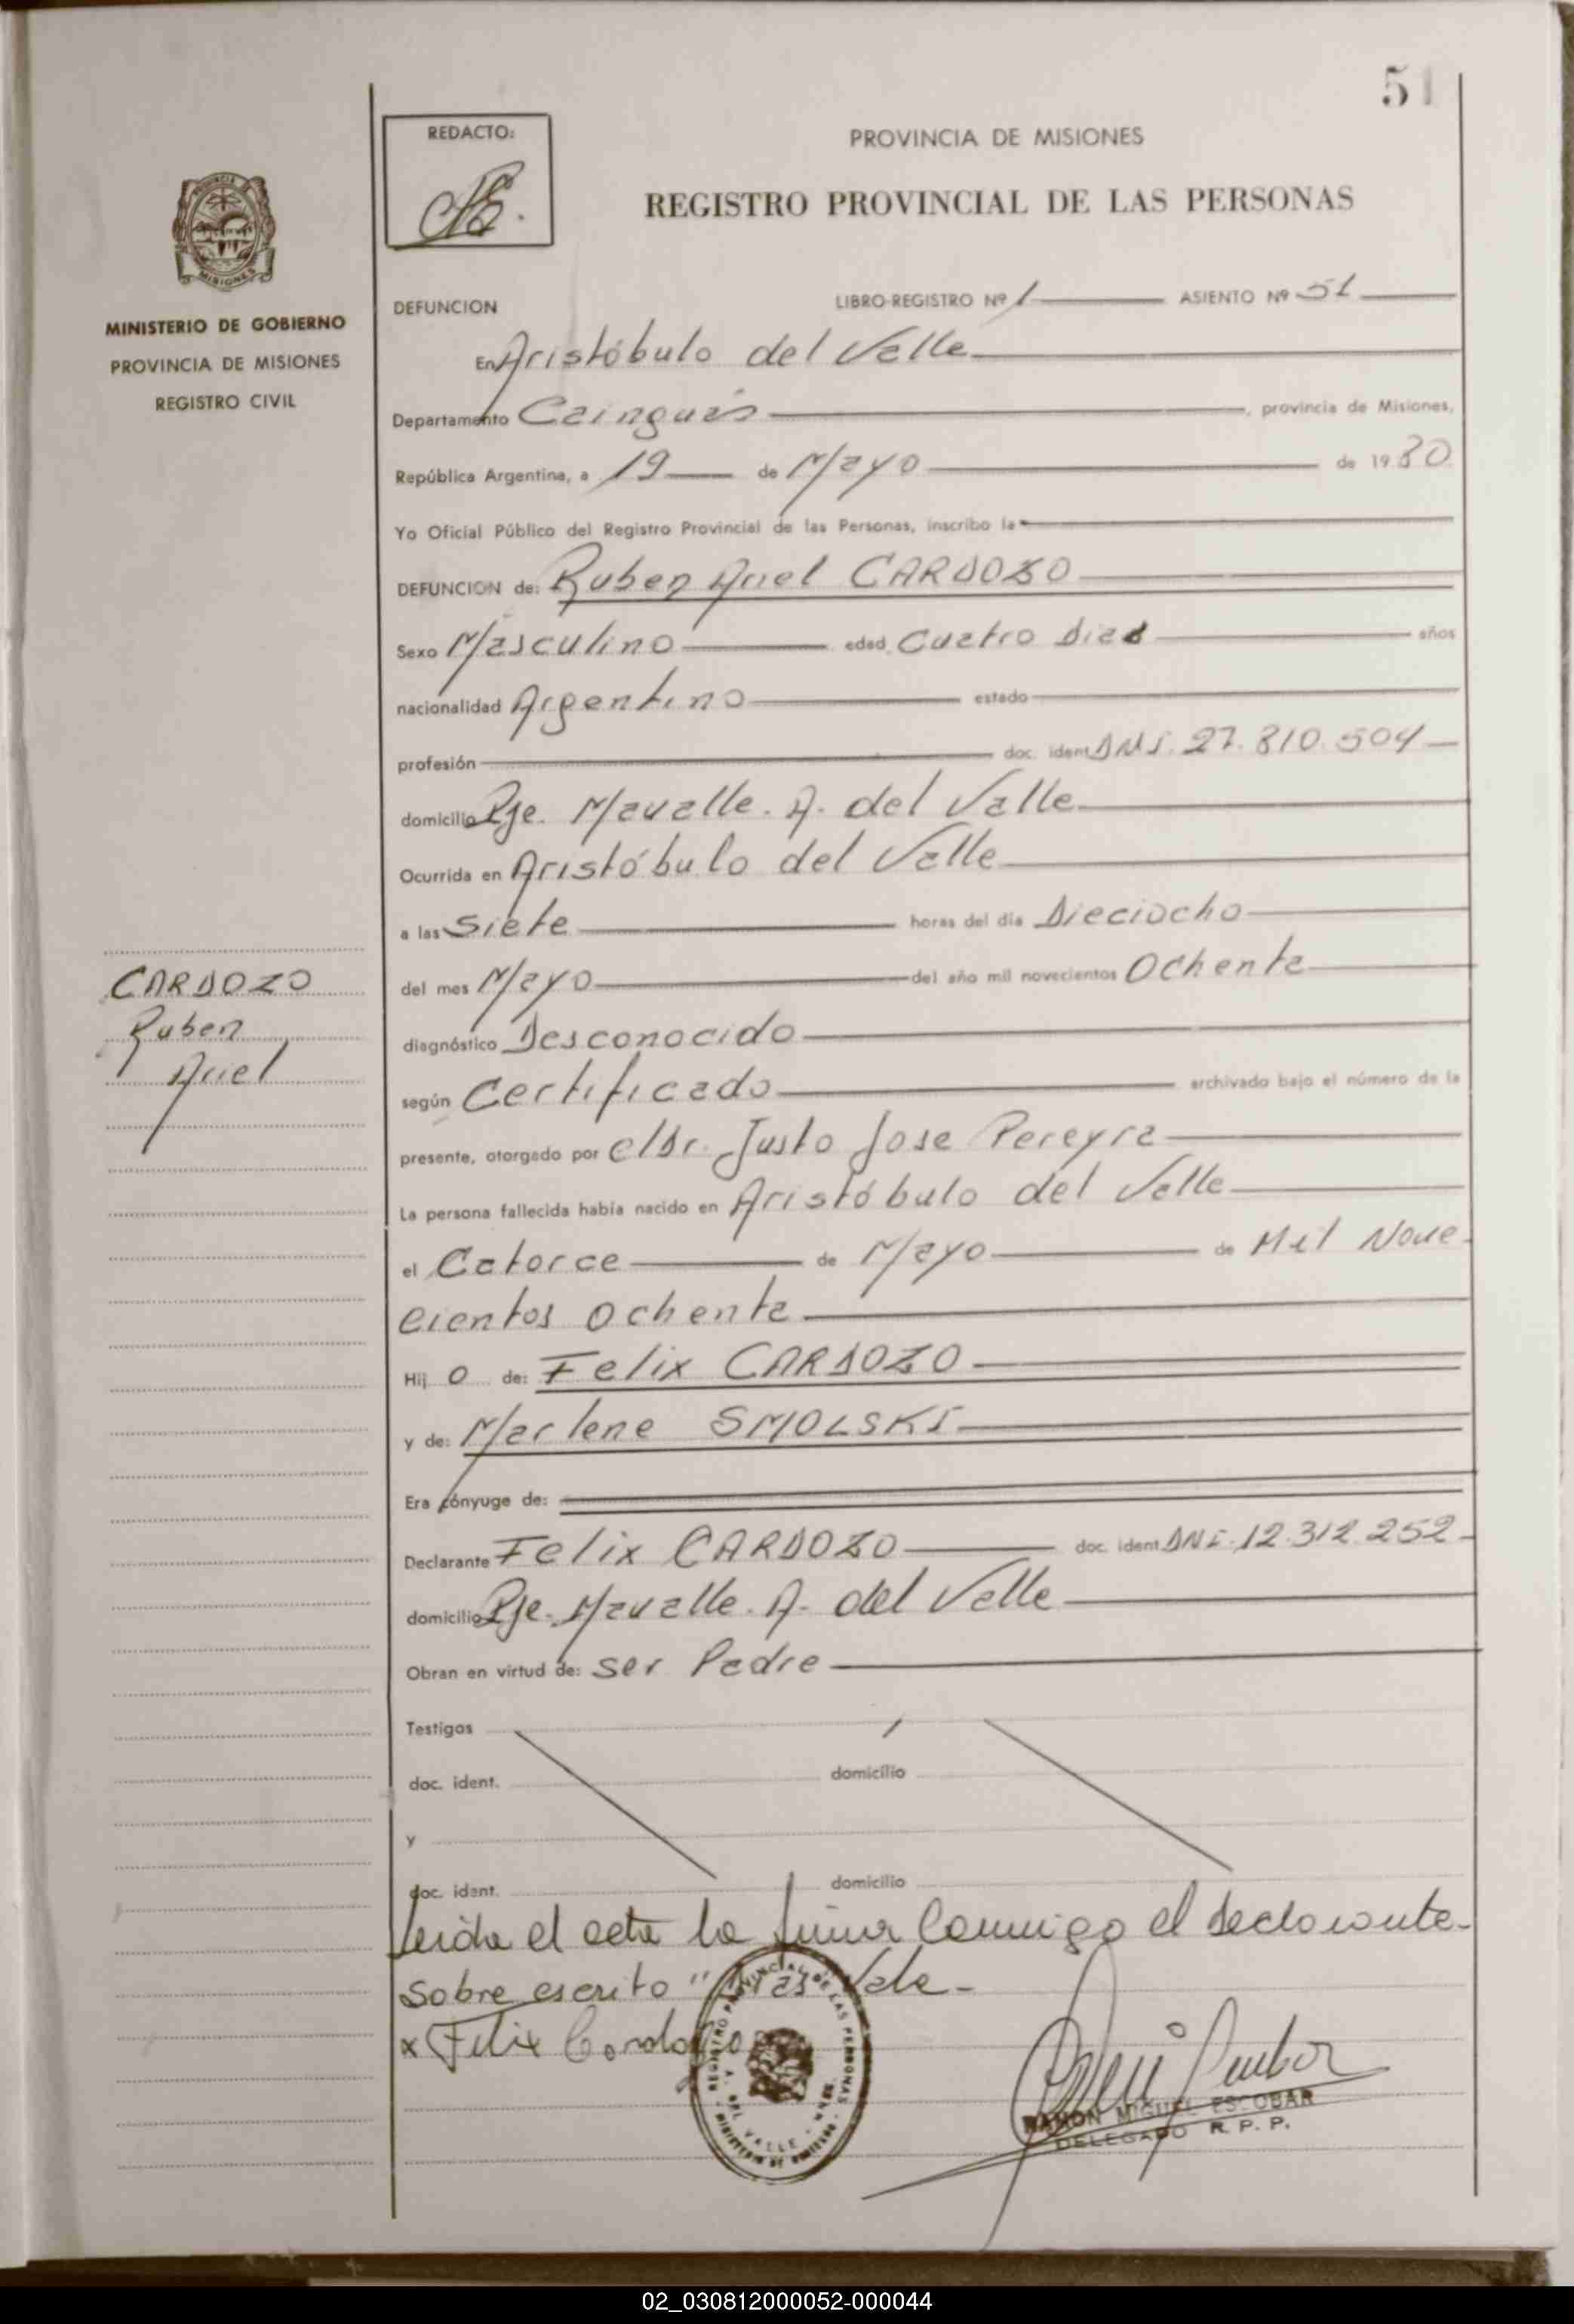 51
REDACTO:
PROVINCIA DE MISIONES
REGISTRO PROVINCIAL DE LAS PERSONAS
MISIONES
MINISTERIO DE GOBIERNO
PROVINCIA DE MISIONES
REGISTRO CIVIL
DEFUNCION LIBRO-REGISTRO Nº 1 ASIENTO Nº 51
En Aristóbulo del Valle
Departamento Cainguás, provincia de Misiones,
República Argentina, a 19 de Mayo de 1980
Yo Oficial Público del Registro Provincial de las Personas, inscribo la
DEFUNCION de: Ruben Ariel CARDOZO
Sexo Masculino edad Cuatro Dias años
nacionalidad Argentino estado
profesión doc. ident DNI. 27.810.504
domicilio Pje. Mavalle. A. del Valle
Ocurrida en Aristóbulo del Valle
a las Siete horas del día Dieciocho
del mes Mayo del año mil novecientos Ochenta
diagnóstico Desconocido
según Certificado archivado bajo el número de la
presente, otorgado por el Dr. Justo Jose Pereyra
La persona fallecida había nacido en Aristóbulo del Valle
el Catorce de Mayo de Mil Nove
cientos Ochenta
Hij o de: Felix CARDOZO
y de: Marlene SMOLSKI
Era cónyuge de:
Declarante Felix CARDOZO doc. ident DNI. 12.312.252
domicilio Pje. Mavalle. A. del Valle
Obran en virtud de: ser Padre
Testigos
doc. ident. domicilio
y
doc. ident. domicilio
leida el acta la firma conmigo el declarante-
Sobre escrito "Dias" Vale-
x Felix Cardozo
CARDOZO
Ruben
Ariel
REGISTRO PROVINCIAL DE LAS PERSONAS
A. DEL VALLE
RAMON MIGUEL ESCOBAR
DELEGADO R. P. P.
02_030812000052-000044